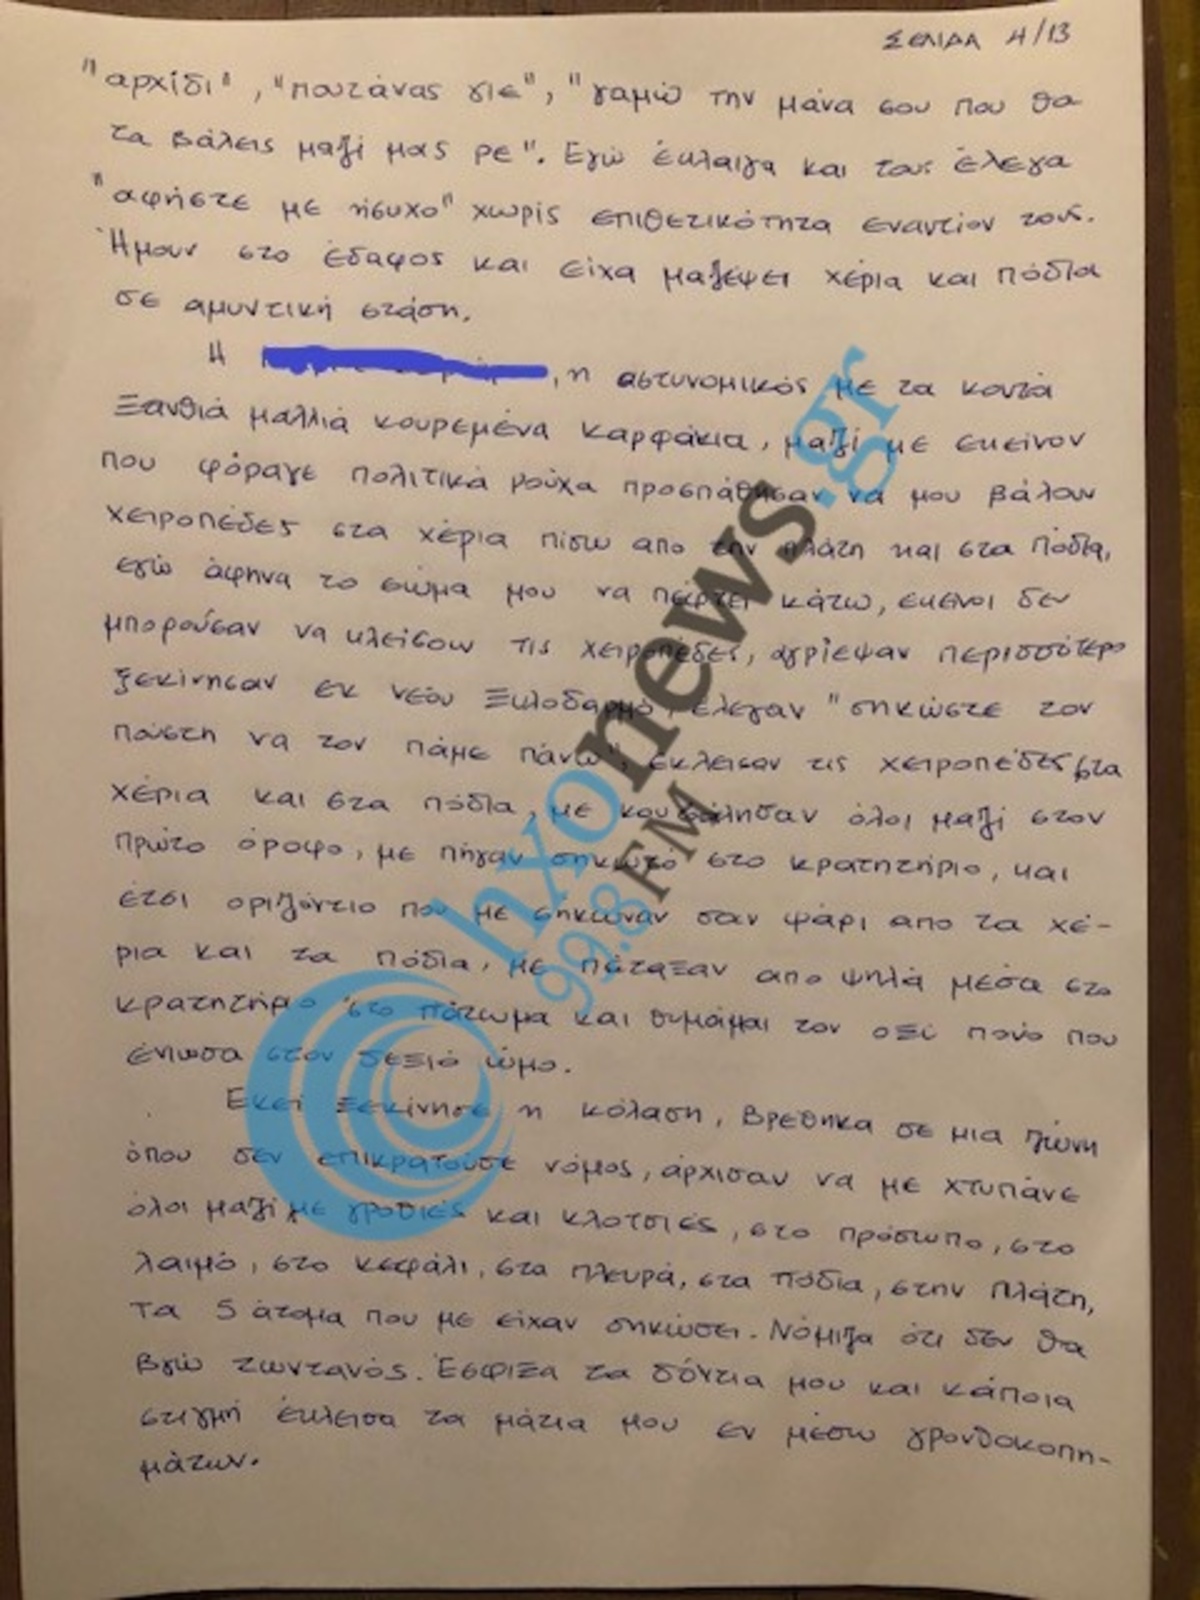 ΣΕΛΙΔΑ 4/13
"αρχίδι", "πουτάνας γιε", "γαμώ την μάνα σου που θα
τα βάλεις μαζί μας ρε". Εγώ έκλαιγα και τους έλεγα
"αφήστε με ήσυχο" χωρίς επιθετικότητα εναντίον τους.
Ήμουν στο έδαφος και είχα μαζέψει χέρια και πόδια
σε αμυντική στάση.
Η , η αστυνομικός με τα κοντά
Ξανθιά μαλλιά κουρεμένα καρφάκια, μαζί με εκείνον
που φόραγε πολιτικά ρούχα προσπάθησαν να μου βάλουν
χειροπέδες στα χέρια πίσω απο την πλάτη και στα πόδια,
εγώ άφηνα το σώμα μου να πέφτει κάτω, εκεινοι δεν
μπορούσαν να κλείσουν τις χειροπέδες, αγρίεψαν περισσότερο
ξεκίνησαν εκ νέου ξυλοδαρμό, έλεγαν "σηκώστε τον
πούστη να τον πάμε πάνω", έκλεισαν τις χειροπέδες στα
χέρια και στα πόδια, με κουβάλησαν όλοι μαζί στον
πρώτο όροφο, με πήγαν σηκωτο στο κρατητήριο, και
έτσι οριζόντιο που με σήκωναν σαν ψάρι απο τα χέ-
ρια και τα πόδια, με πέταξαν απο ψηλά μέσα στο
κρατητήριο στο πάτωμα και θυμάμαι τον οξύ πόνο που
ένιωσα στον δεξιό ώμο.
Εκεί ξεκίνησε η κόλαση, βρέθηκα σε μια ζώνη
όπου δεν επικρατούσε νόμος, άρχισαν να με χτυπάνε
όλοι μαζί με γροθιές και κλοτσιές, στο πρόσωπο, στο
λαιμό, στο κεφάλι, στα πλευρά, στα πόδια, στην πλάτη,
τα 5 άτομα που με είχαν σηκώσει. Νόμιζα ότι δεν θα
βγώ ζωντανός. Έσφιξα τα δόντια μου και κάποια
στιγμή έκλεισα τα μάτια μου εν μέσω γρονθοκοπη-
μάτων.
hxonews.gr
99.8 FM